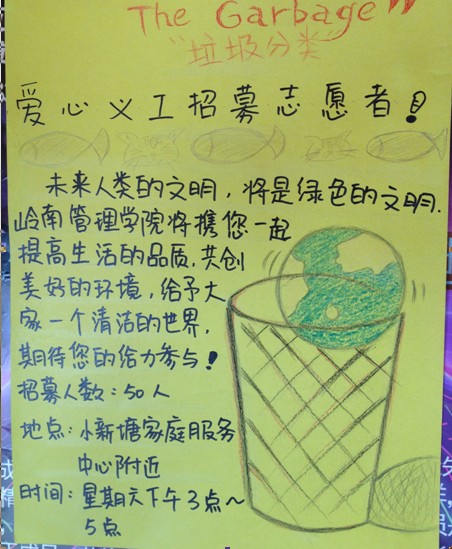 The Garbage"
"垃圾分类"
爱心义工招募志愿者!
未来人类的文明，将是绿色的文明.
岭南管理学院将携您一起
提高生活的品质.共创
美好的环境，给予大
家一个清洁的世界.
期待您的给力参与!
招募人数:50人
地点:小新塘家庭服务
中心附近
时间:星期六下午3点~
5点